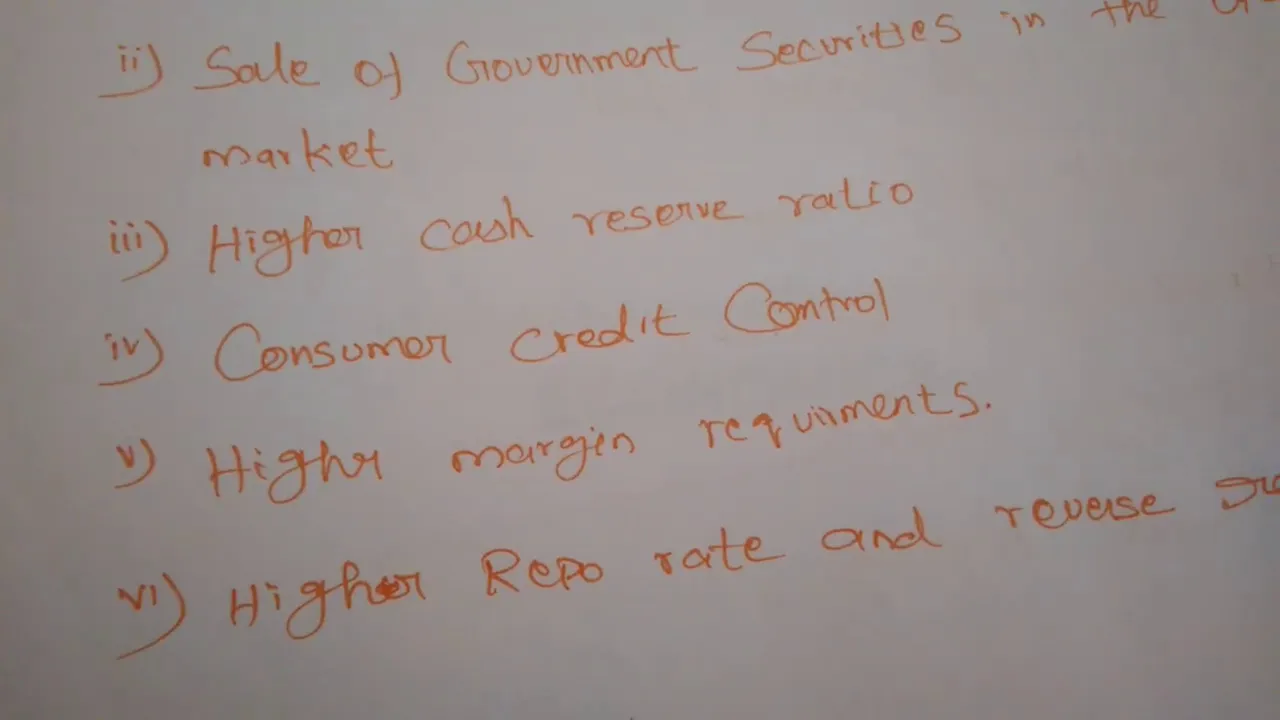 ii) Sale of Government Securities in the
market
iii) Higher cash reserve ratio
iv) Consumer credit Control
v) Highr margin requirments.
vi) Higher Repo rate and reverse